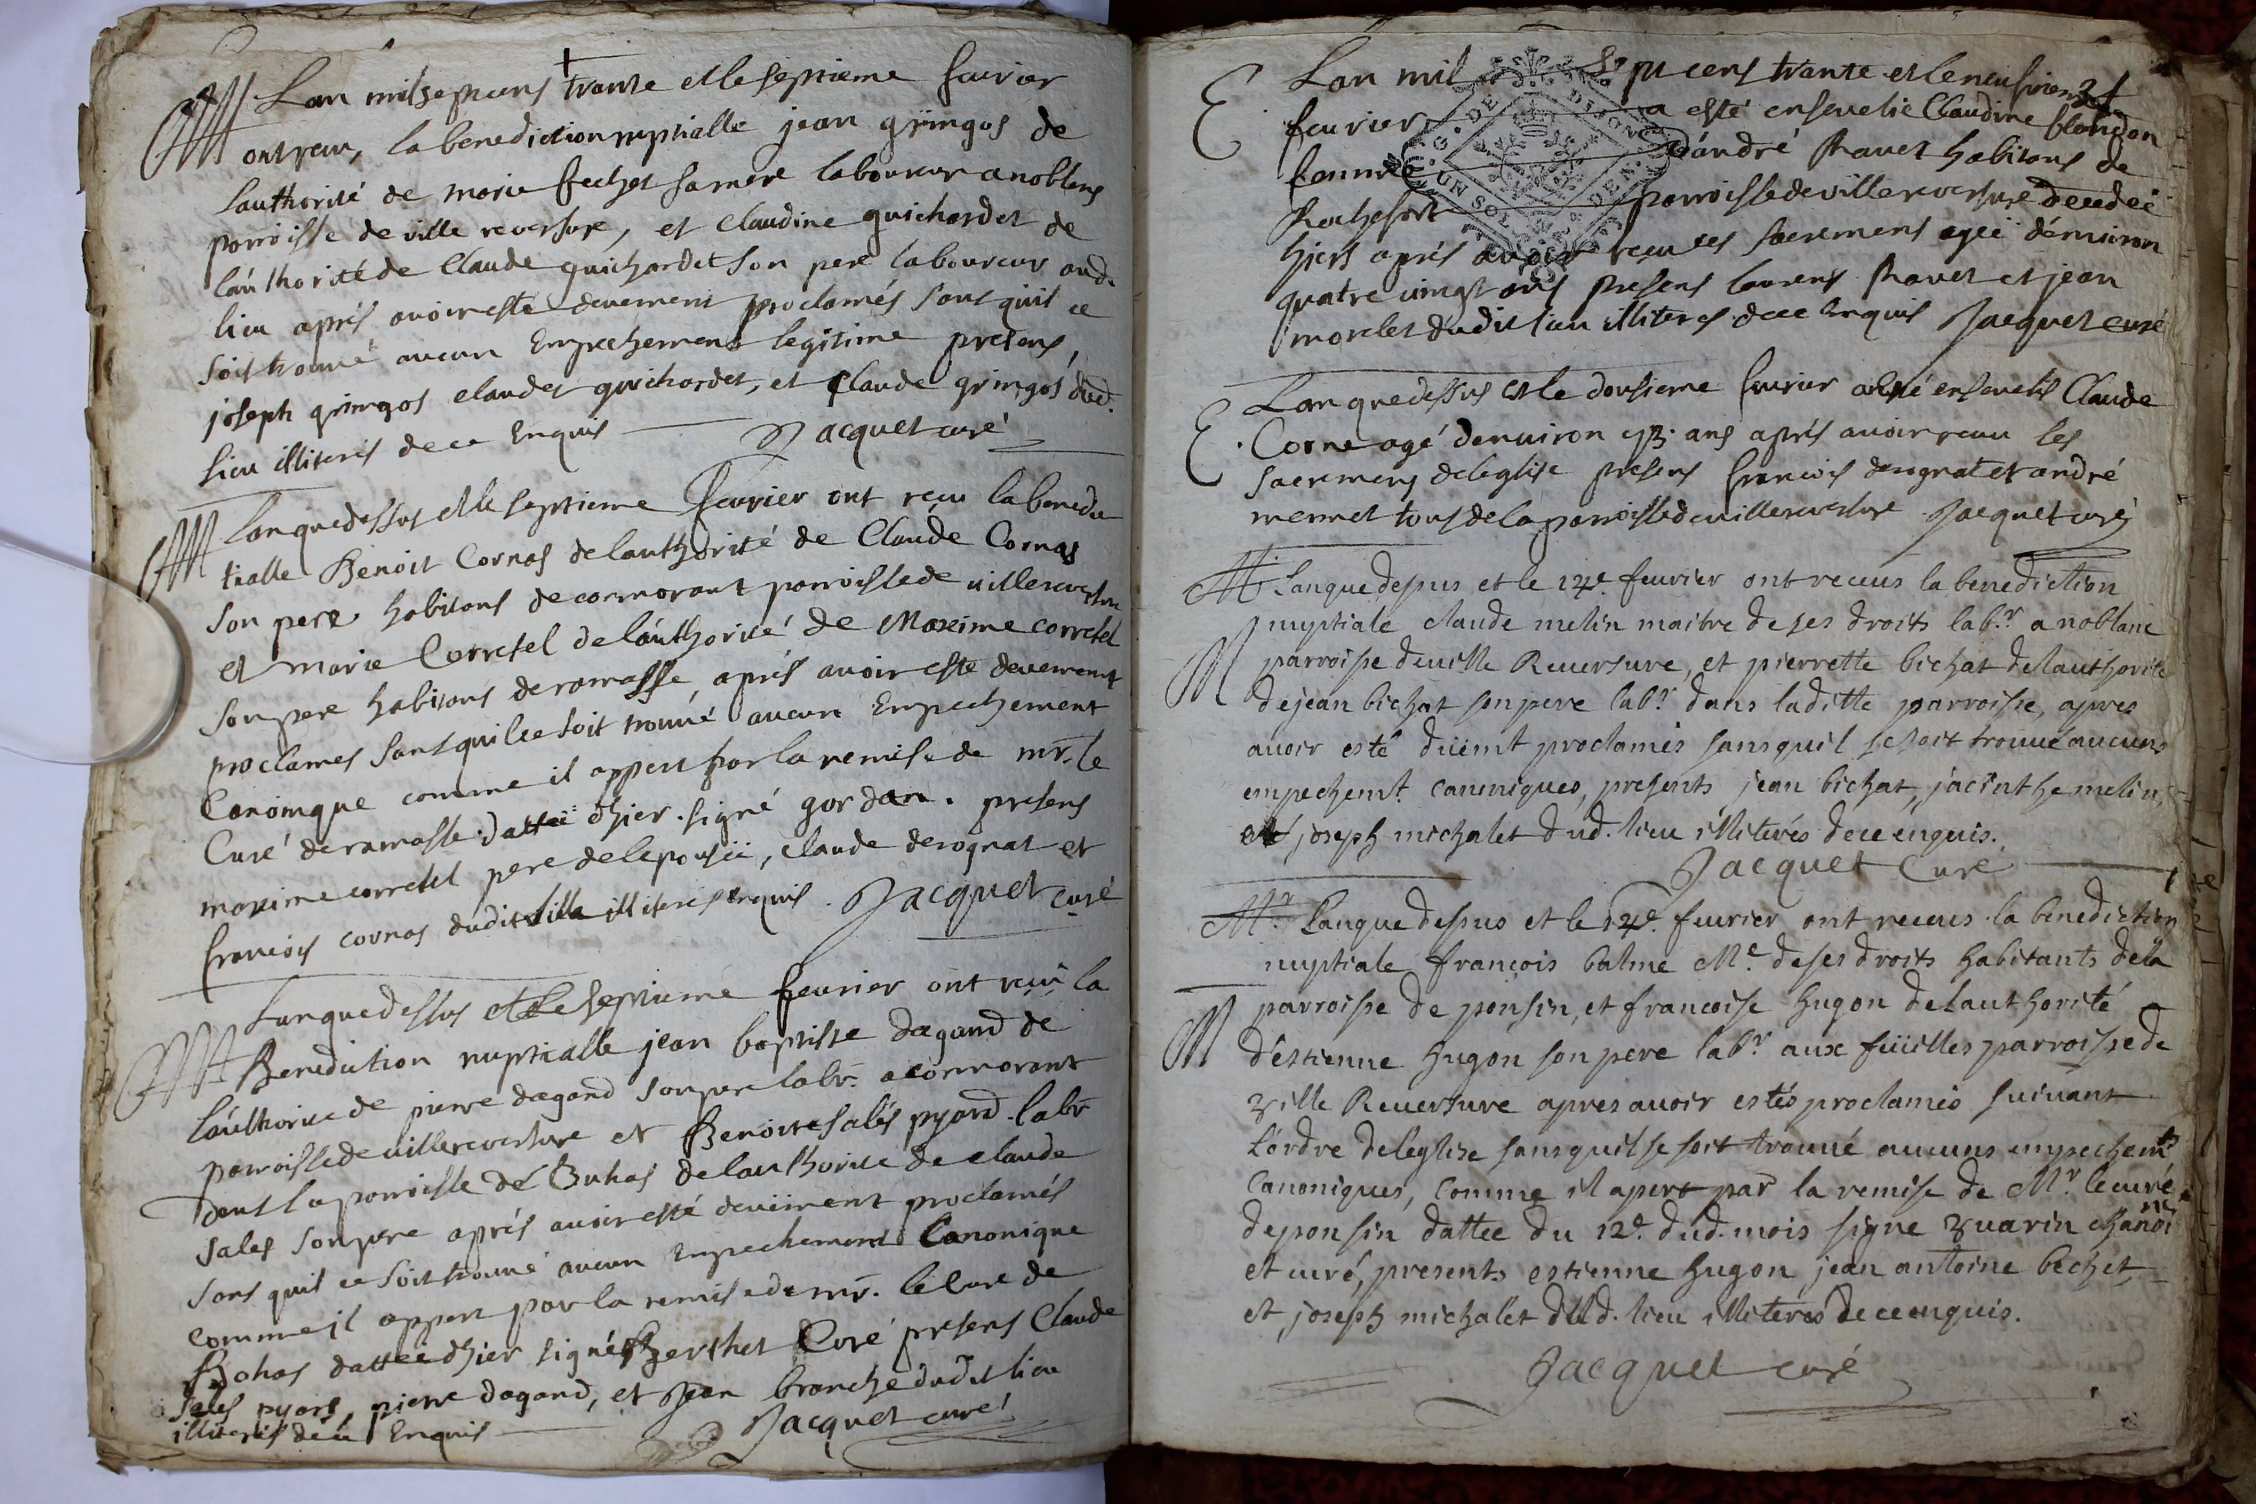 M
Lan mil sept cens trante et le septieme feurier
ont receu, la benediction nuptialle jean gringos de
lauthorité de marie fechet sa mere laboureur a noblens
parroisse de ville reversure, et Claudine guichardet de
lauthorité de Claude guichardet son pere laboureur aud.
lieu aprés avoir esté deuement proclamés sans quil ce
soit trouué aucun Empechement legitime presens,
joseph gringos claudet guichardet, et Claude gringos dud.
lieu illiterés de ce Enquis Jacquet curé
M
Lan que dessus et le septieme feurier ont reçu la benedic
tialle Benoit Cornas de lauthorité de Claude Cornas
son pere habitans de cormorant parroisse de villereversure
et marie Corretel de lauthorité de Maxime corretel
son pere habitans de ramasse, aprés auoir esté deuement
proclames sans quil ce soit trouué aucun Empechement
Canonique comme il appert par la remise de mr. le
Curé de ramasse dattée dhier. signé gordan. presens
maxime corretel pere de lepousée, claude derognat et
francois cornas dudit illiterés Enquis. Jacquet curé
M
Lan que dessus et le septieme feurier ont reçu la
Benediction nuptialle jean baptiste dagand de
lauthorité de pierre dagand son pere labr. a cormorant
parroisse de villereversure et Benoite sales pyard. labr
dans la parroisse de Buhas de lauthorité de claude
sales son pere aprés auoir esté deuëment proclamés
sans quil ce soit trouué aucun Empechement Canonique
comme il appert par la remise de mr. le Curé de
Bohas dattée dhier signé Berthet Curé presens Claude
sales pyard, pierre dagand, et Jean branche dudit lieu
illiterés de ce Enquis Jacquet curé
31
E
Lan mil sept cens trante et le neufuieme
feurier a esté enseuelie Claudine blondon
femme d'andré Rauet habitans de
Rochefort parroisse de villereversure decedeé
hiers aprés auoir reçu ses sacremens ageé d'énuiron
quatre vingt ans presens laurens Rauet et jean
morelet dudit lieu illiterés de ce Enquis Jacquet curé
E.
Lan que dessus et le dousieme feurier a esté enseuelis Claude
Corne agé denuiron ans aprés auoir receu les
sacremens de leglise presens francois derognat et andré
mermet tous de la parroisse de villereversure Jacquet curé
M
Lan que depus et le 14e. feurier ont receus la benediction
nuptiale claude melin maitre de ses droits labr. a noblanc
parroisse deuille Reuersure, et pierrette bichat de lauthorité
de jean bichat son pere labr. dans laditte parroisse, apres
auoir esté düëmt proclamés sans quil se soit trouué aucuns
empechemt. canoniques, presents jean bichat, jacinthe melin,
et joseph michalet dud. lieu illiterés de ce enquis.
Jacquet Curé
M
Lan que depus et le 14e. feurier ont receus la benediction
nuptiale françois balme Me. de ses droits habitants de la
parroisse de ponsin, et francoise hugon de lauthorité
d'estienne hugon son pere labr. aux feüilles parroisse de
ville Reuersure apres auoir estés proclamés suiuant
lordre de leglise sans quil se soit trouué aucuns empechemts
Canoniques, comme il apert par la remise de Mr. le curé
de ponsin dattee du 12e. dud. mois signe Zuarin chanoine
et curé, presents estienne hugon jean antoine bechet,
et joseph michalet dud. lieu illiteres de ce enquis.
Jacquet curé